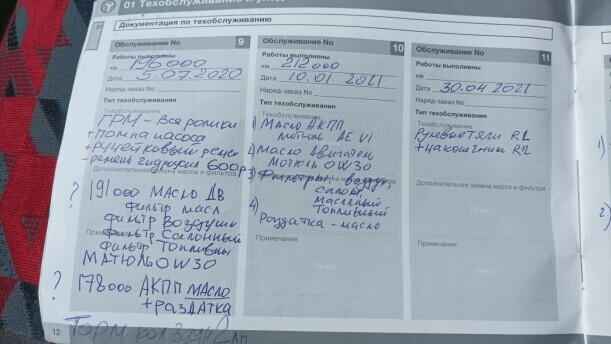 01 Техобслуживание и ухо
Документация по техобслуживанию
Обслуживание No 9
Работы выполнены
км 196000
Дата 5.07.2020
Наряд-заказ No
Тип техобслуживания
Техобслуживание
ГРМ - Все ролики
+ помпа насоса
+ ручейковый ремен
- ремень гидроусил 600р
Дополнительная замена масла и фильтра
? 191000 Масло ДВ
фильтр масл.
фильтр Воздушн
Фильтр Салонный
Фильтр Топливны
Примечание
МАТЮЛЬ OW30
? 178000 АКПП МАСЛО
+ раздатка
12
Обслуживание No 10
Работы выполнены
км 212000
Дата 10.01.2021
Наряд-заказ No
Тип техобслуживания
Техобслуживание
1) Масло АКПП
мотюль AE VI
2) Масло Двигатель
Мотюль OW30
3) Фильтры, воздуш,
салон,
Масляный
4) Топливный
Роздатка - масло
Примечание
Печать
Обслуживание No 11
Работы выполнены
км
Дата 30.04 2021
Наряд-заказ No
Тип техобслуживания
Техобслуживание
Рулевые тяги RL
+ наконечник RL
Дополнительная замена масла и фильтра
Печать
Примечание
Печать
1)
2)